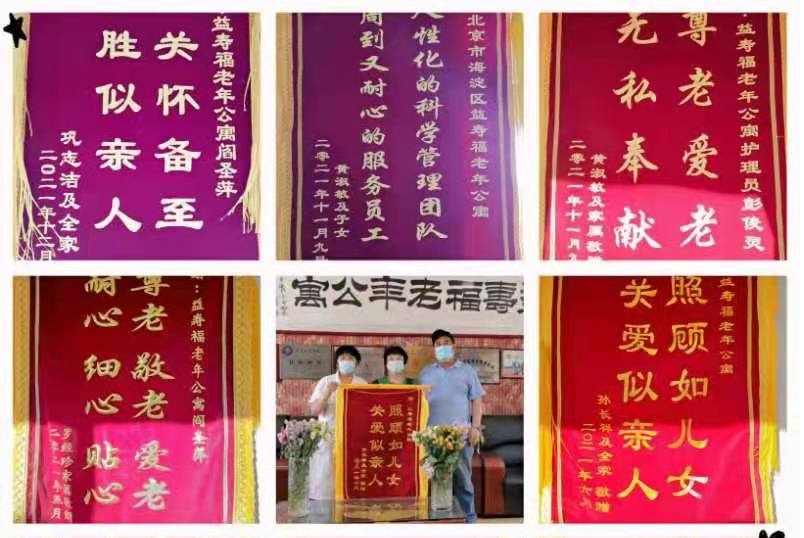 益寿福老年公寓阎圣萍
关怀备至
胜似亲人
巩志洁及全家
二〇二一年十二月
北京市海淀区益寿福老年公寓
人性化的科学管理团队
周到又耐心的服务员工
黄淑敏及子女
二零二一年十一月九日
益寿福老年公寓护理员彭俊灵
尊老爱老
无私奉献
黄淑敏及家属敬赠
二零二一年十一月九日
益寿福老年公寓阎圣萍
尊老敬老 爱老
耐心 细心 贴心
壽福老年公寓
照顾如儿女
关爱似亲人
益寿福老年公寓
照顾如儿女
关爱似亲人
及全家 敬赠
二〇二一年六月